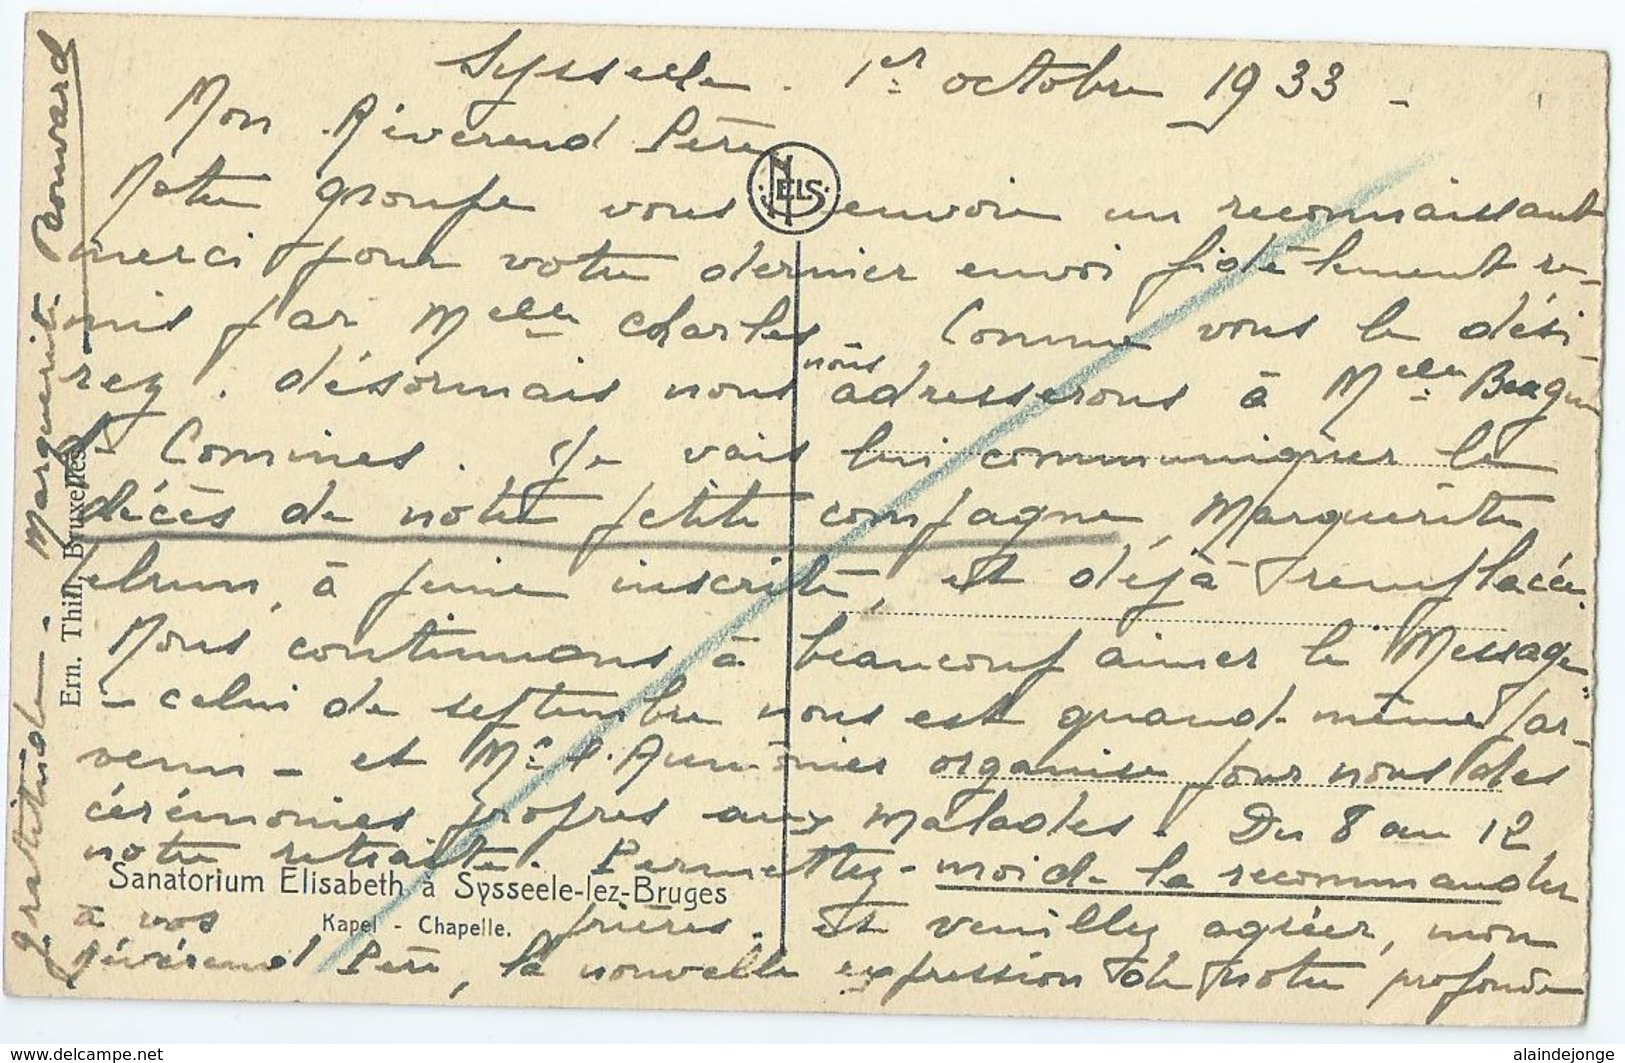 Sysseele. 1er octobre 1933 -
Mon Révérend Père
Notre groupe vous envoie un reconnaissant
merci pour votre dernier envoi fidèlement re-
mis par Melle Charles. Comme vous le dési-
rez, désormais nous nous adresserons à Melle
Comines. Je vais lui communiquer le
décès de notre petite compagne Marguerite
à peine inscrite, et déjà remplacée.
Nous continuons à beaucoup aimer le Message
- celui de septembre nous est quand-même par-
venu - et Mr l'Aumônier organise pour nous des
cérémonies propres aux malades. Du 8 au 12
notre retraite. Permettez-moi de la recommander
à vos prières. et veuillez agréer, mon
Révérend Père, la nouvelle expression de notre profonde
gratitude - Marguerite
NELS
Ern. Thill, Bruxelles
Sanatorium Elisabeth à Sysseele-lez-Bruges
Kapel - Chapelle.
www.delcampe.net
alaindejonge